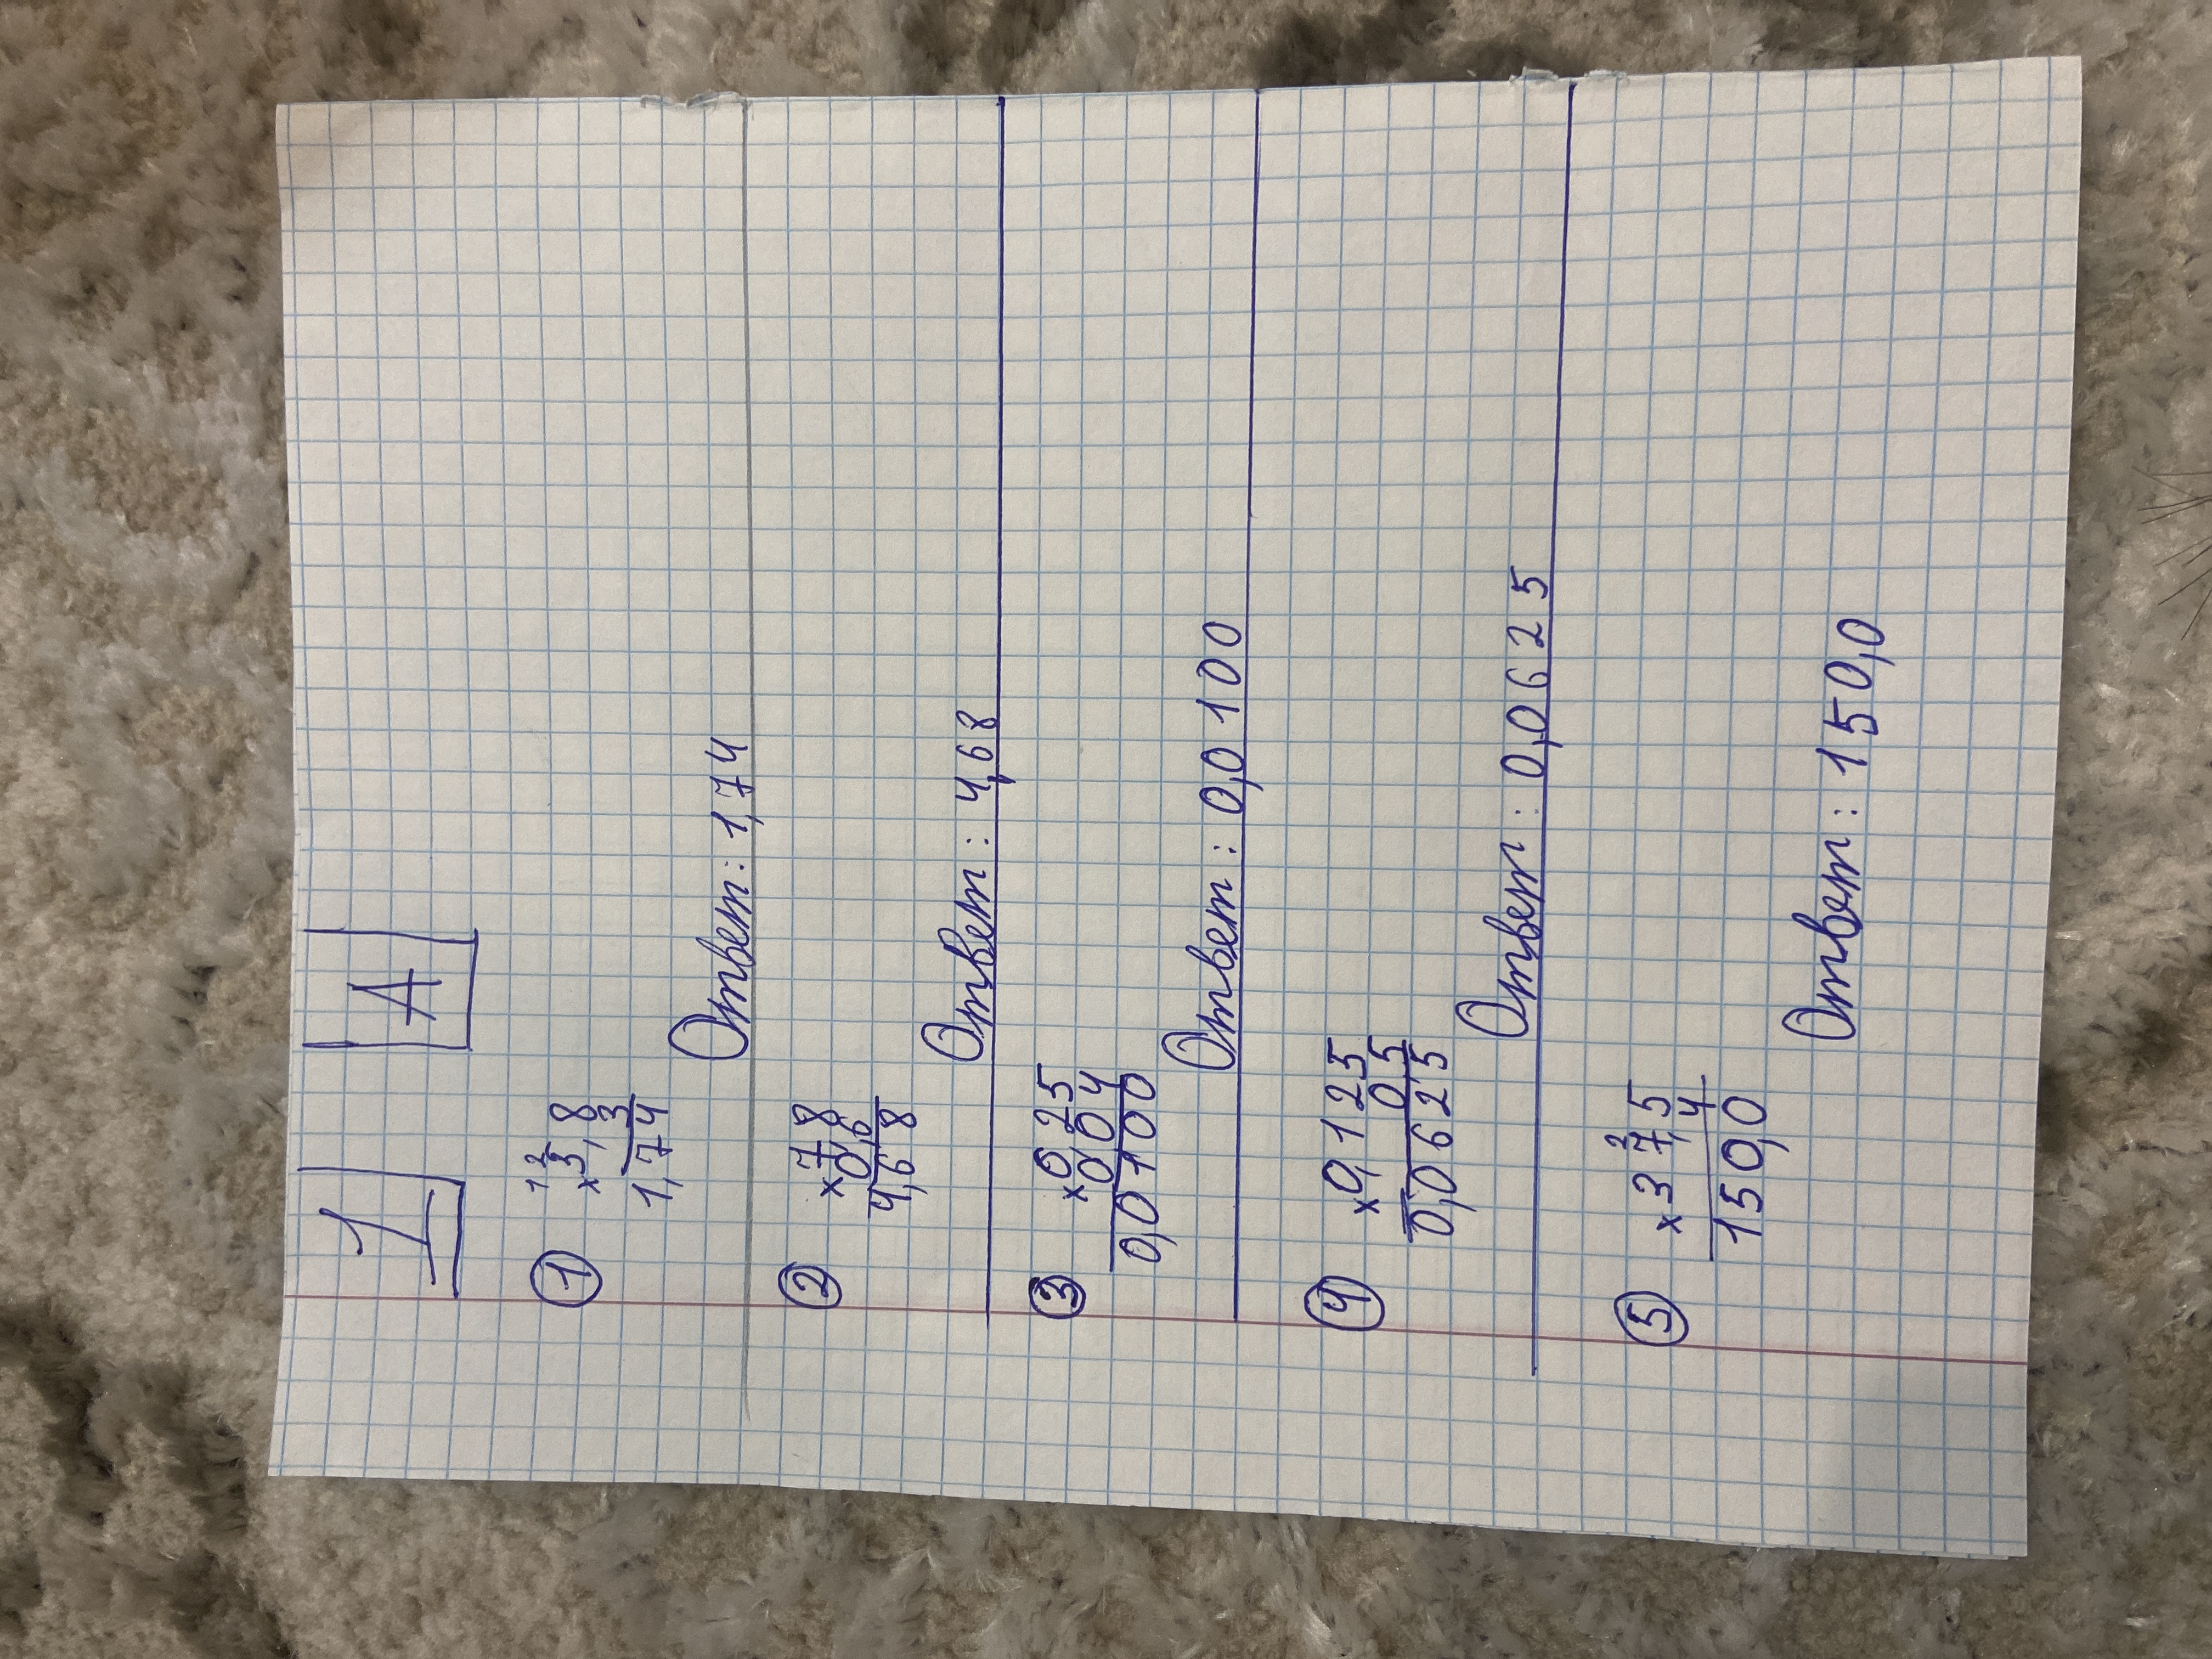 1 A
① 1 2
×5,8
3
1,74
Ответ: 1,74
② ×7,8
0,6
4,68
Ответ: 4,68
③ ×0,25
0,04
0,0100
Ответ: 0,0100
④ ×0,125
0,5
0,0625
Ответ: 0,0625
⑤ 2
×37,5
4
150,0
Ответ: 150,0